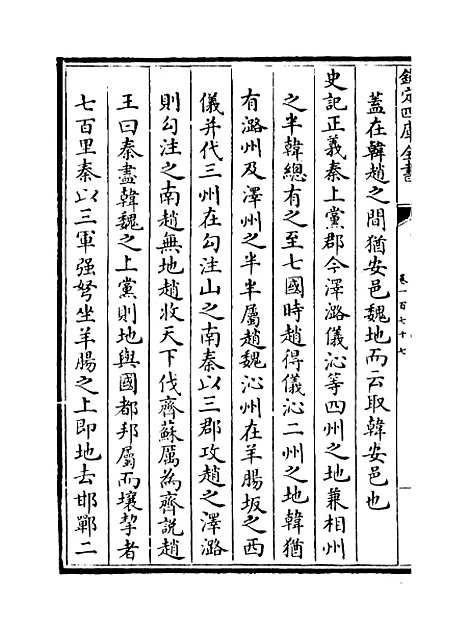 欽定四庫全書
卷一百七十七
蓋在韓趙之間猶安邑魏地而云取韓安邑也
史記正義秦上黨郡今澤潞儀沁等四州之地兼相州
之半韓總有之至七國時趙得儀沁二州之地韓猶
有潞州及澤州之半半屬趙魏沁州在羊腸坂之西
儀并代三州在勾注山之南秦以三郡攻趙之澤潞
則勾注之南趙無地趙收天下伐齊蘇厲為齊說趙
王曰秦盡韓魏之上黨則地與國都邦屬而壤挈者
七百里秦以三軍强弩坐羊腸之上即地去邯鄲二